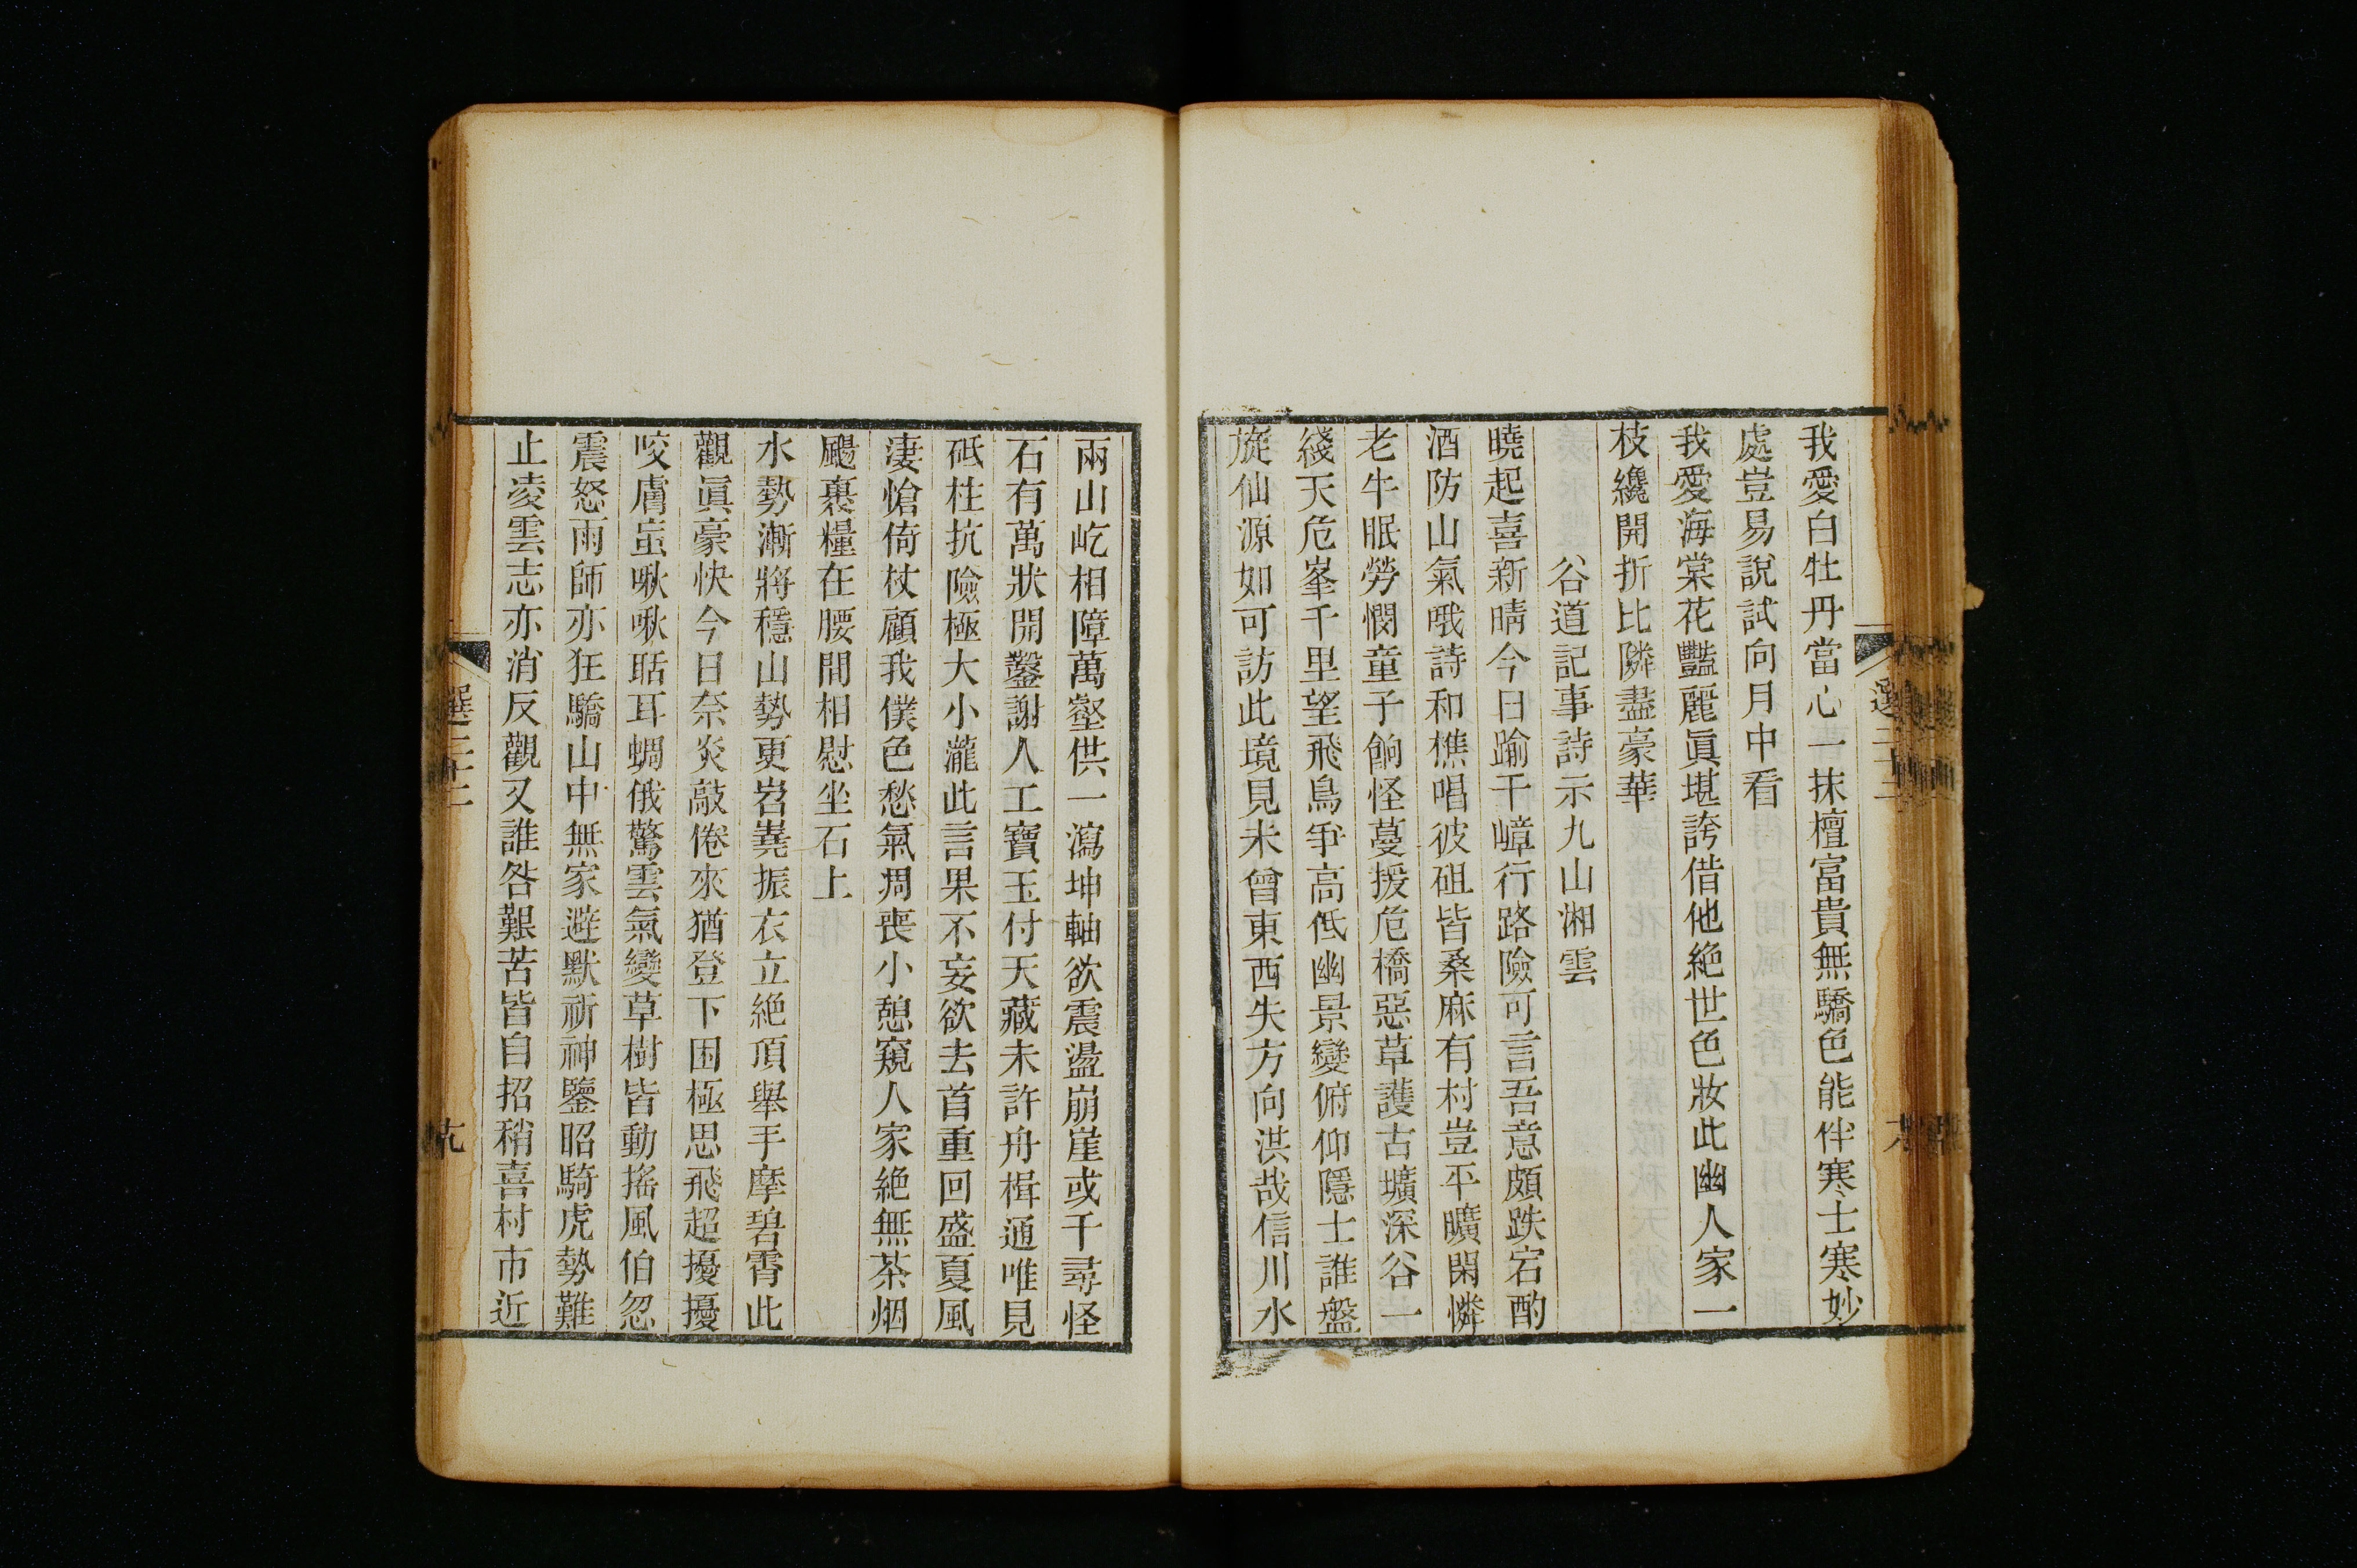 我愛白牡丹當心一抹檀富貴無驕色能伴寒士寒妙
處豈易說試向月中看
我愛海棠花豔麗眞堪誇借他絶世色妝此幽人家一
枝纔開折比隣盡豪華
谷道記事詩示九山湘雲
曉起喜新晴今日踰千嶂行路險可言吾意頗跌宕酌
酒防山氣哦詩和樵唱彼砠皆桑麻有村豈平曠閑憐
老牛眠勞憫童子餉怪蔓援危橋惡草護古壙深谷一
綫天危峯千里望飛鳥爭高低幽景變俯仰隱士誰盤
旋仙源如可訪此境見未曾東西失方向洪哉信川水
選二十二
兩山屹相障萬壑供一瀉坤軸欲震盪崩崖或千尋怪
石有萬狀開鑿謝人工寶玉付天藏未許舟楫通唯見
砥柱抗險極大小瀧此言果不妄欲去首重回盛夏風
淒愴倚杖顧我僕色愁氣凋喪小憩窺人家絶無茶烟
颺裹糧在腰間相慰坐石上
水勢漸將穩山勢更岧嶤振衣立絶頂舉手摩碧霄此
觀眞豪快今日奈炎敲倦來猶登下困極思飛超擾擾
咬膚䖟啾啾聒耳蜩俄驚雲氣變草樹皆動搖風伯忽
震怒雨師亦狂驕山中無家避默祈神鑒昭騎虎勢難
止凌雲志亦消反觀又誰咎艱苦皆自招稍喜村市近
選二十二